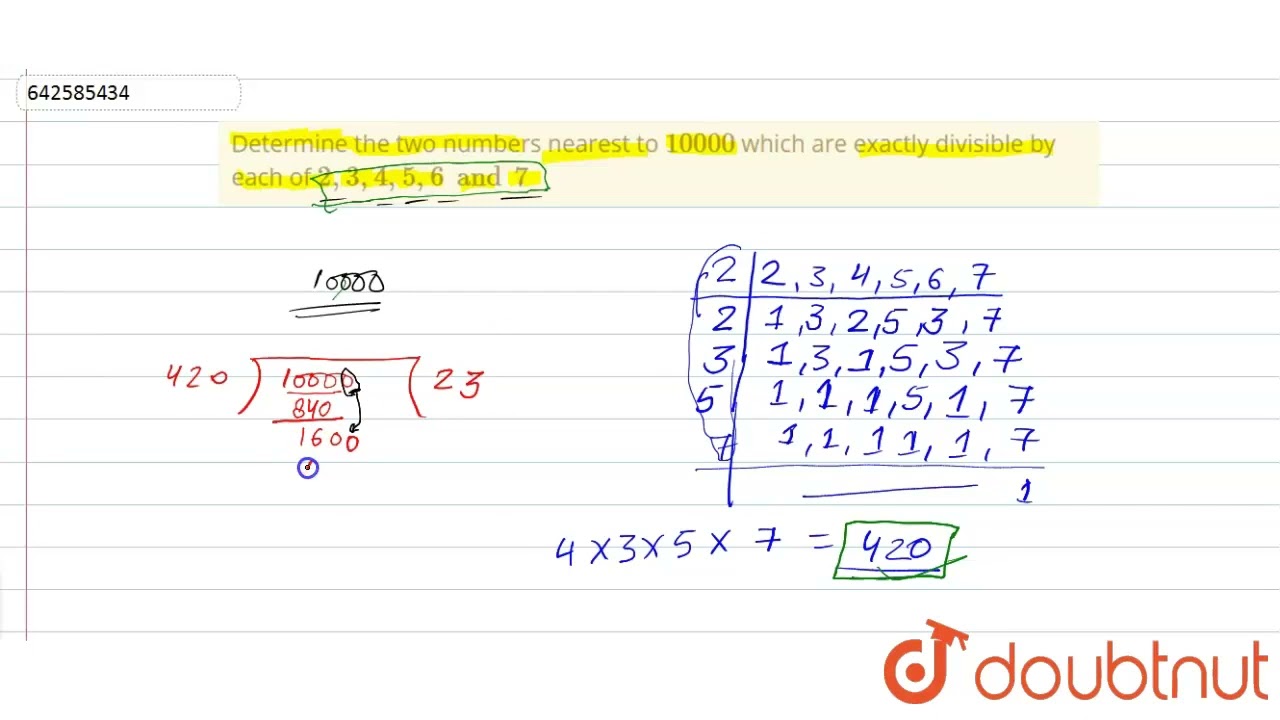 642585434
Determine the two numbers nearest to 10000 which are exactly divisible by
each of 2, 3, 4, 5, 6 and 7
10000
420 ) 10000 ( 23
840
1600
2 | 2, 3, 4, 5, 6, 7
2 | 1, 3, 2, 5, 3, 7
3 | 1, 3, 1, 5, 3, 7
5 | 1, 1, 1, 5, 1, 7
7 | 1, 1, 1 1, 1, 7
1
4 × 3 × 5 × 7 = 420
doubtnut